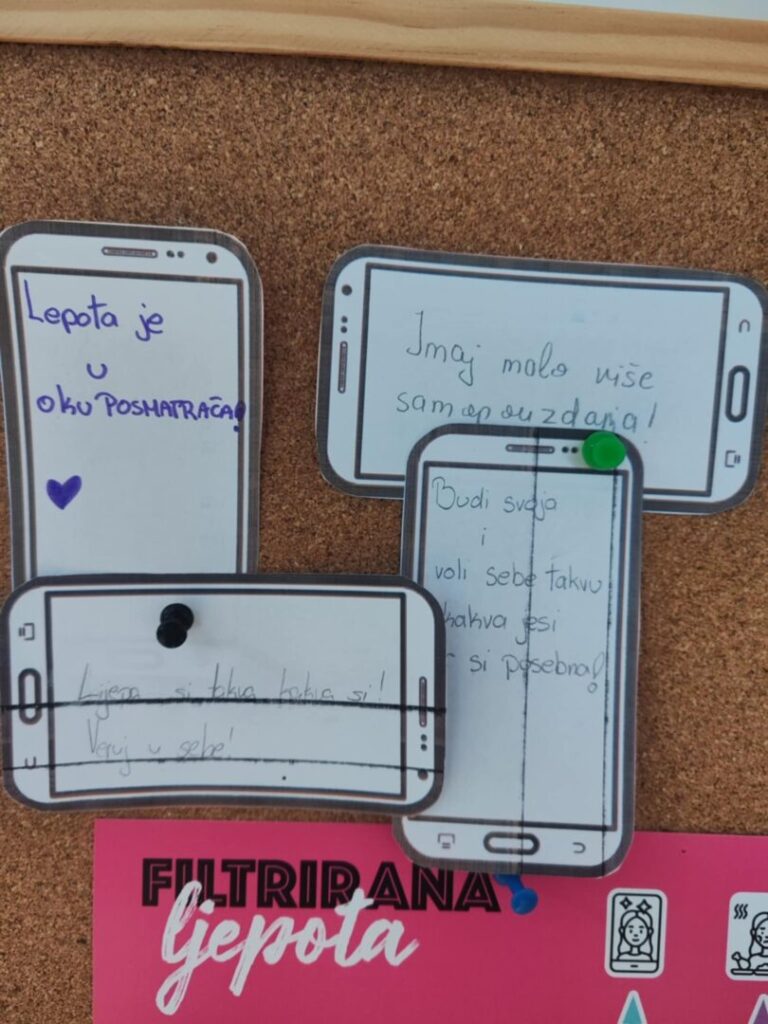 Lepota je
u
oku POSMATRAČA!
Imaj malo više
samopouzdanja!
Budi svoja
i
voli sebe takvu
kakva jesi
si posebna!
Lijepa si takva kakva si!
Veruj u sebe!
FILTRIRANA
ljepota